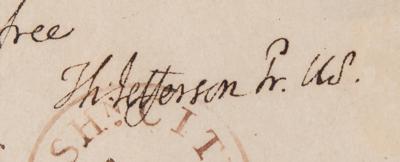 free
Th Jefferson Pr. US.
SHA CIT